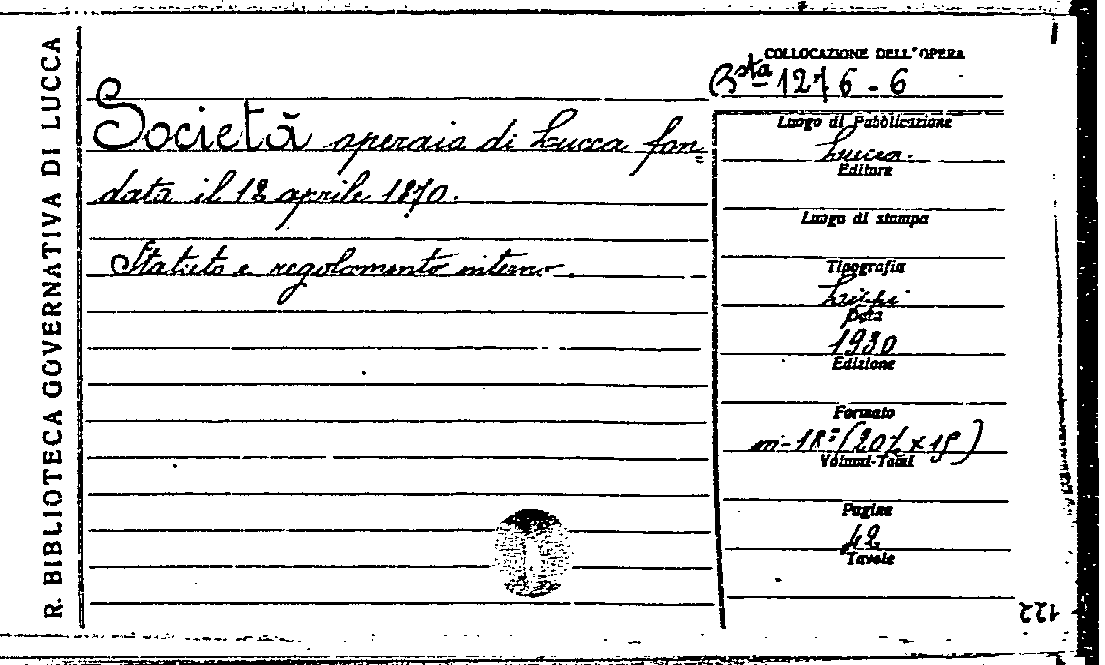 R. BIBLIOTECA GOVERNATIVA DI LUCCA
COLLOCAZIONE DELL'OPERA
Bsta 1276 - 6
Società operaia di Lucca fon=
data il 18 aprile 1870.
Statuto e regolamento interno.
Luogo di Pubblicazione
Lucca.
Editore
Luogo di stampa
Tipografia
Data
1930
Edizione
Formato
in-18°
Volumi-Tomi
Pagine
42
Tavole
122